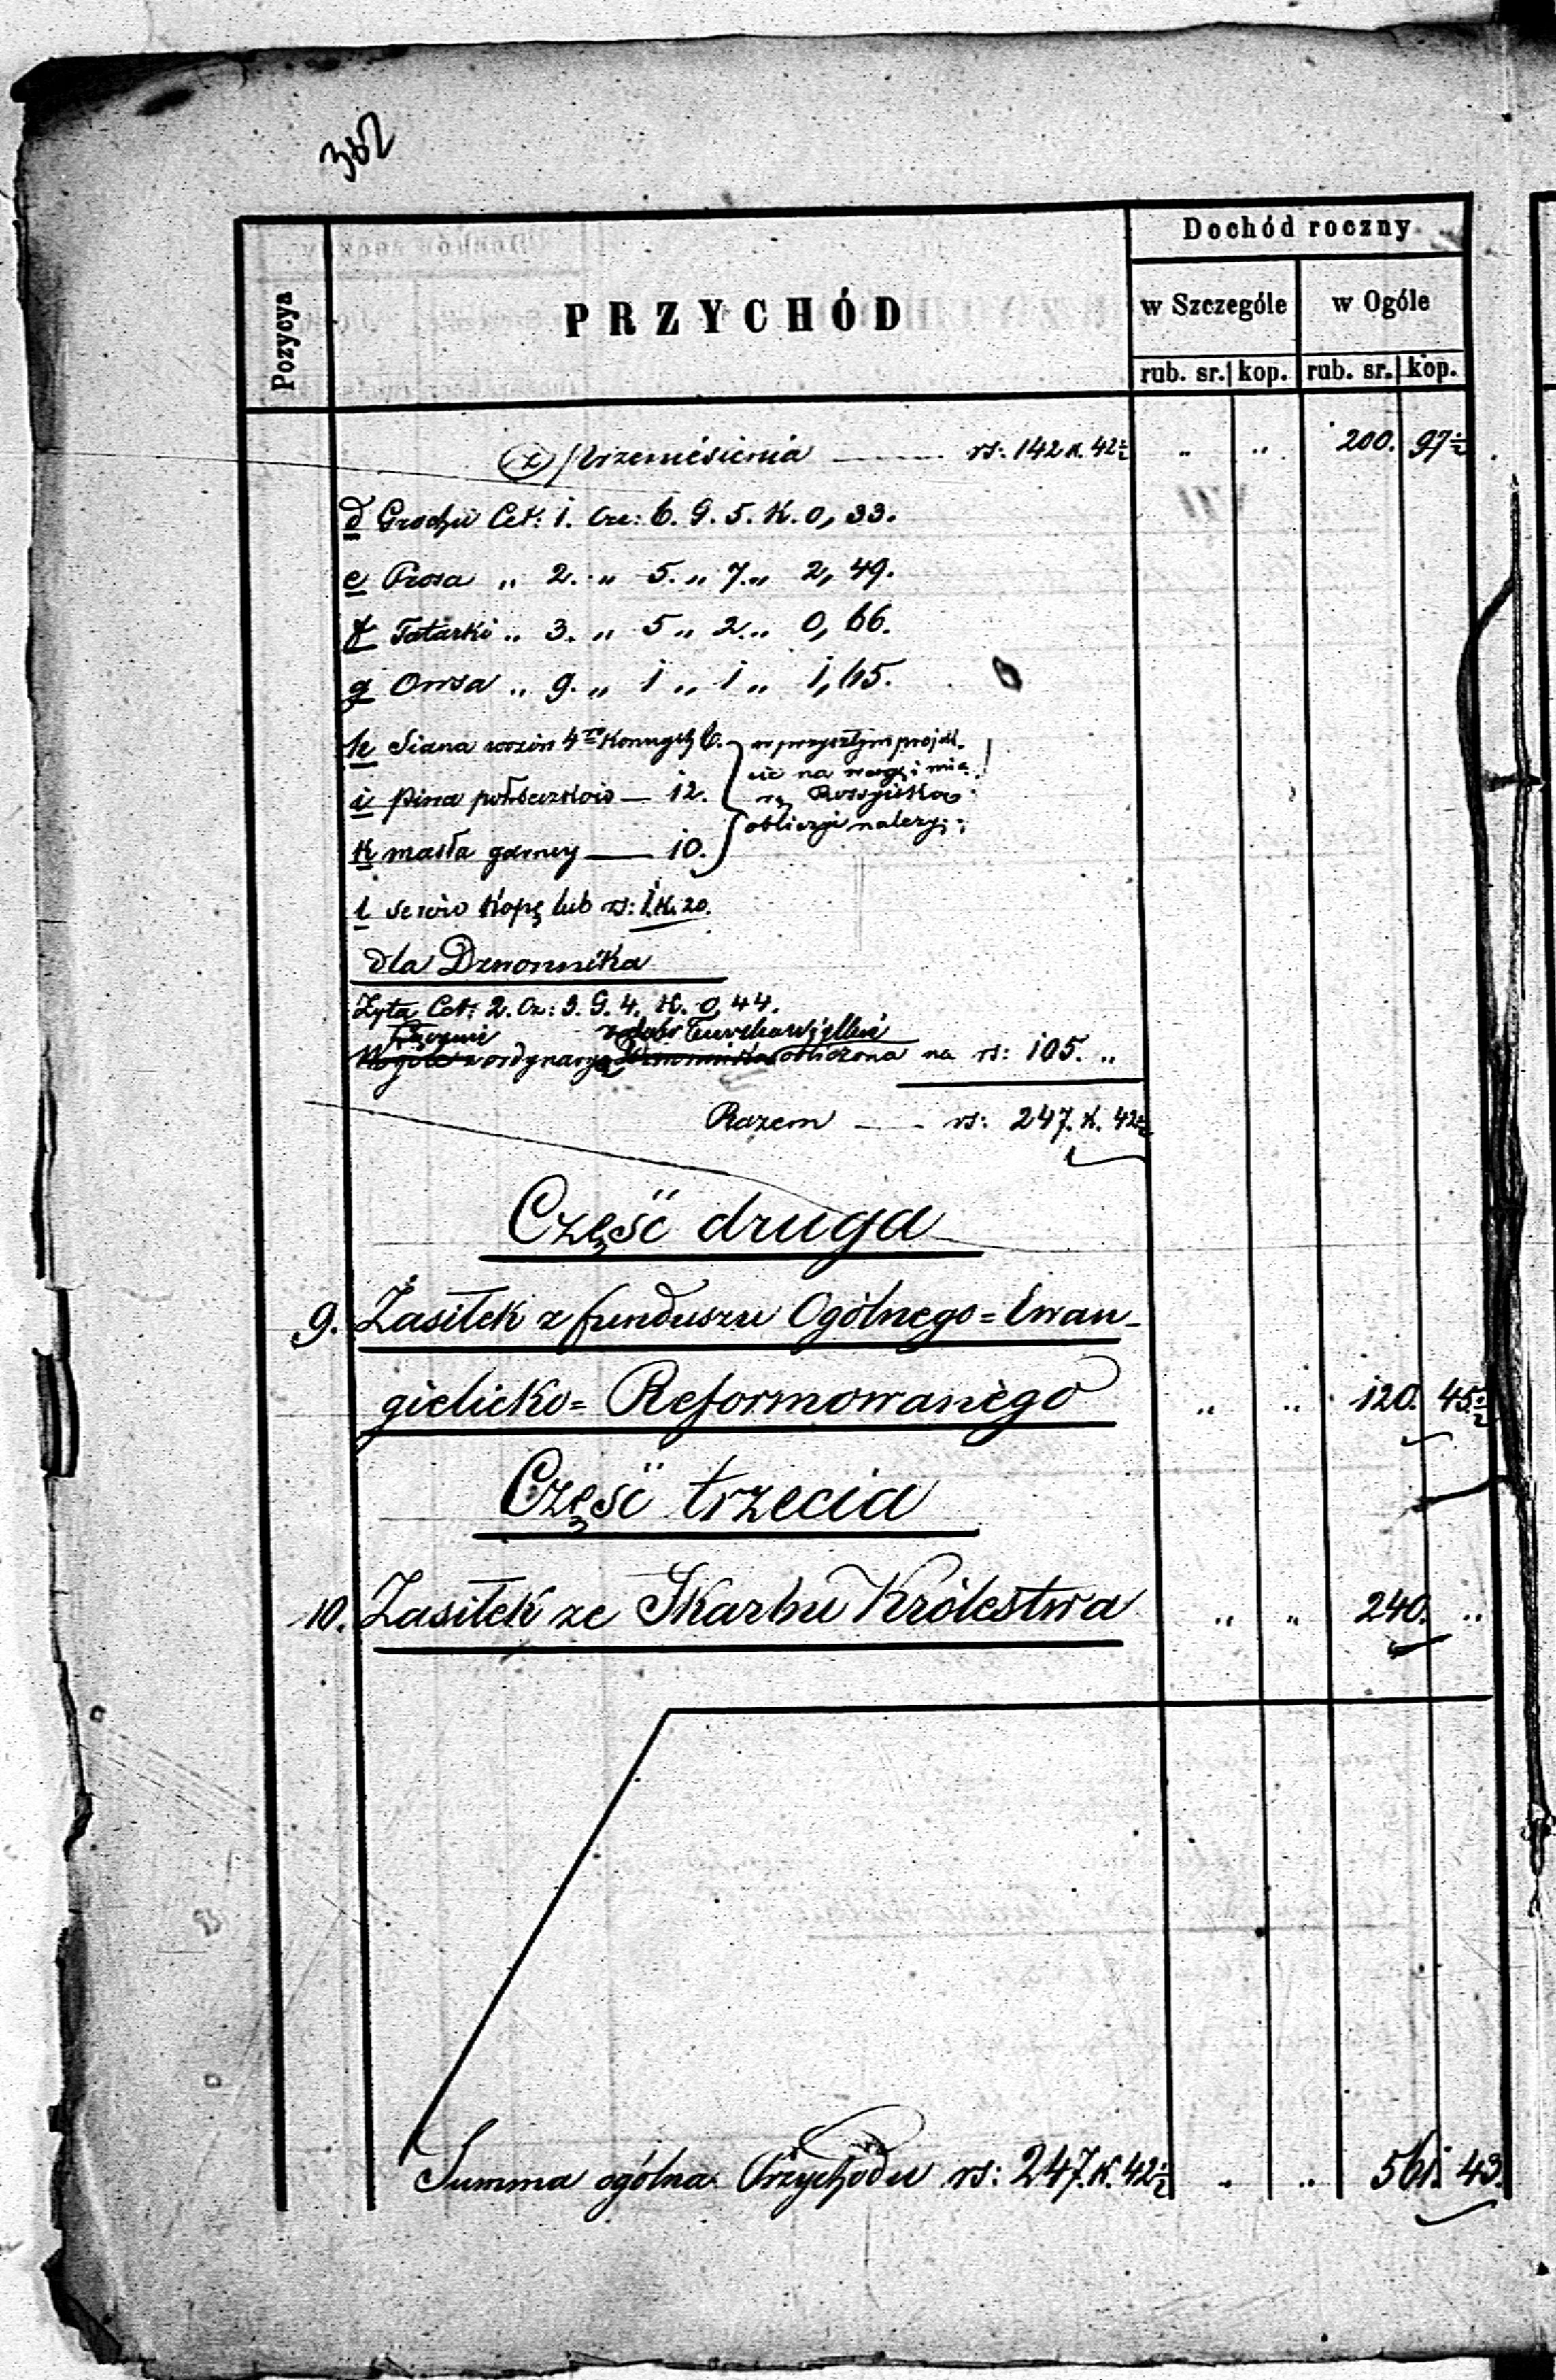 362
Dochód roczny
Pozycya
PRZYCHÓD
w Szczególe
w Ogóle
rub. sr. kop. rub. sr. kop.
(x) Przeniesienia —— rs: 142 k. 42½ " " 200. 97½
d Grochu Cet: 1. Cze: 6. G. 5. K. 0,33.
e Prosa " 2. " 5. " 7. " 2,49.
f Tatarki " 3. " 5 " 2. " 0,66.
g Owsa " 9. " 1 " 1 " 1,65.
h Siana wozów 4ro Konnych 6.
i piwa półbeczków — 12.
k masła garncy — 10.
w przyszłym projek.
cie na wagę i mia.
rę Rossyiską
obliczyć należy;
l serów kopę lub rs: 1. K. 20.
dla Dzwonnika
Żyta Cet: 2. Cz: 3. G. 4. K. 0,44.
Łącznie
ordynarya obliczona na rs: 105. "
Razem —— rs: 247. K. 42½
Część druga
9. Zasiłek z funduszu Ogólnego=Ewan-
gielicko=Reformowanego " " 120. 45½
Część trzecia
10. Zasiłek ze Skarbu Królestwa " " 240. "
Summa ogólna Przychodu rs: 247. K. 42½ " " 561. 43.